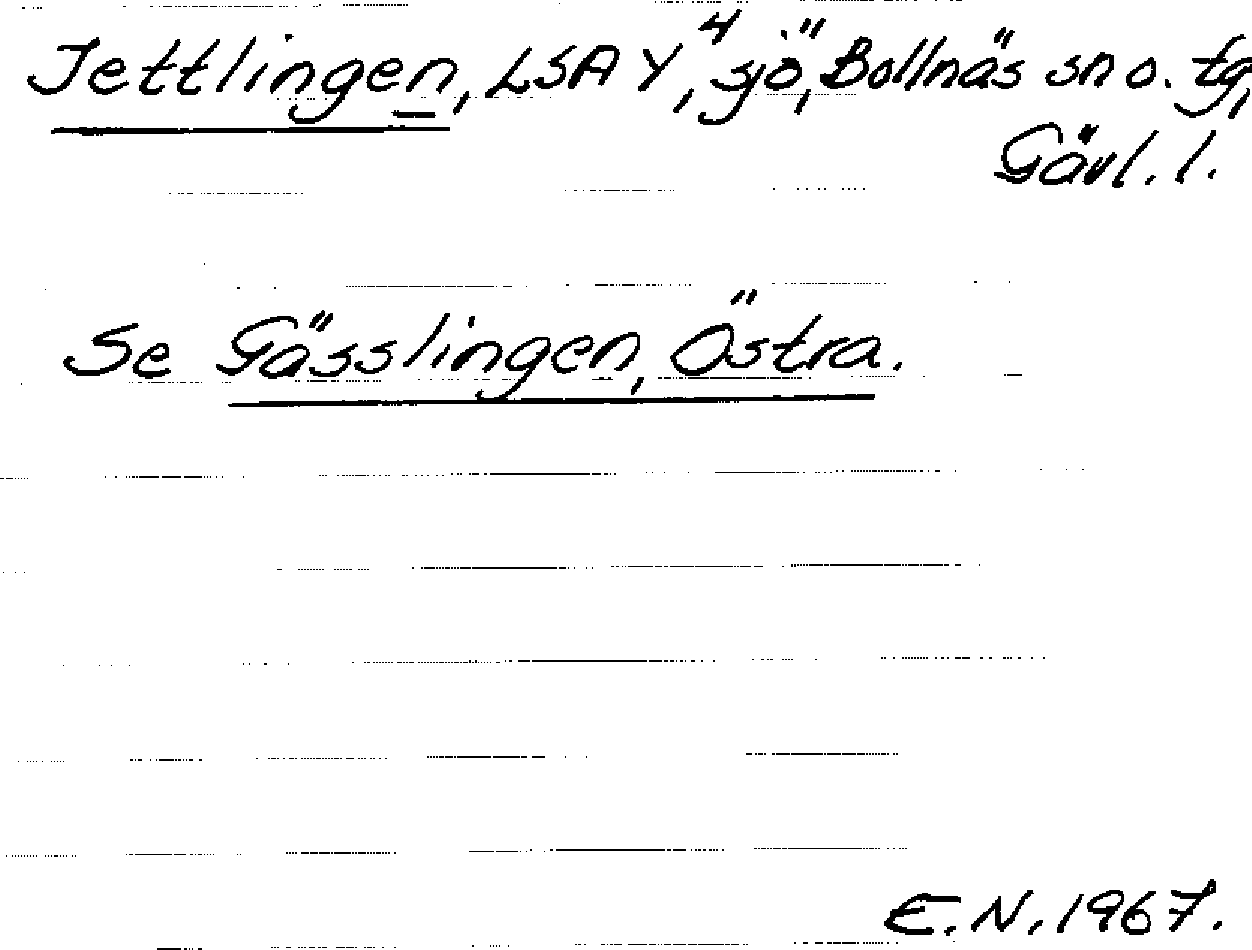 Jettlingen, LSA Y⁴, sjö, Bollnäs sn o. tg,
Gävl. l.
Se Gässlingen, Östra.
E.N. 1967.